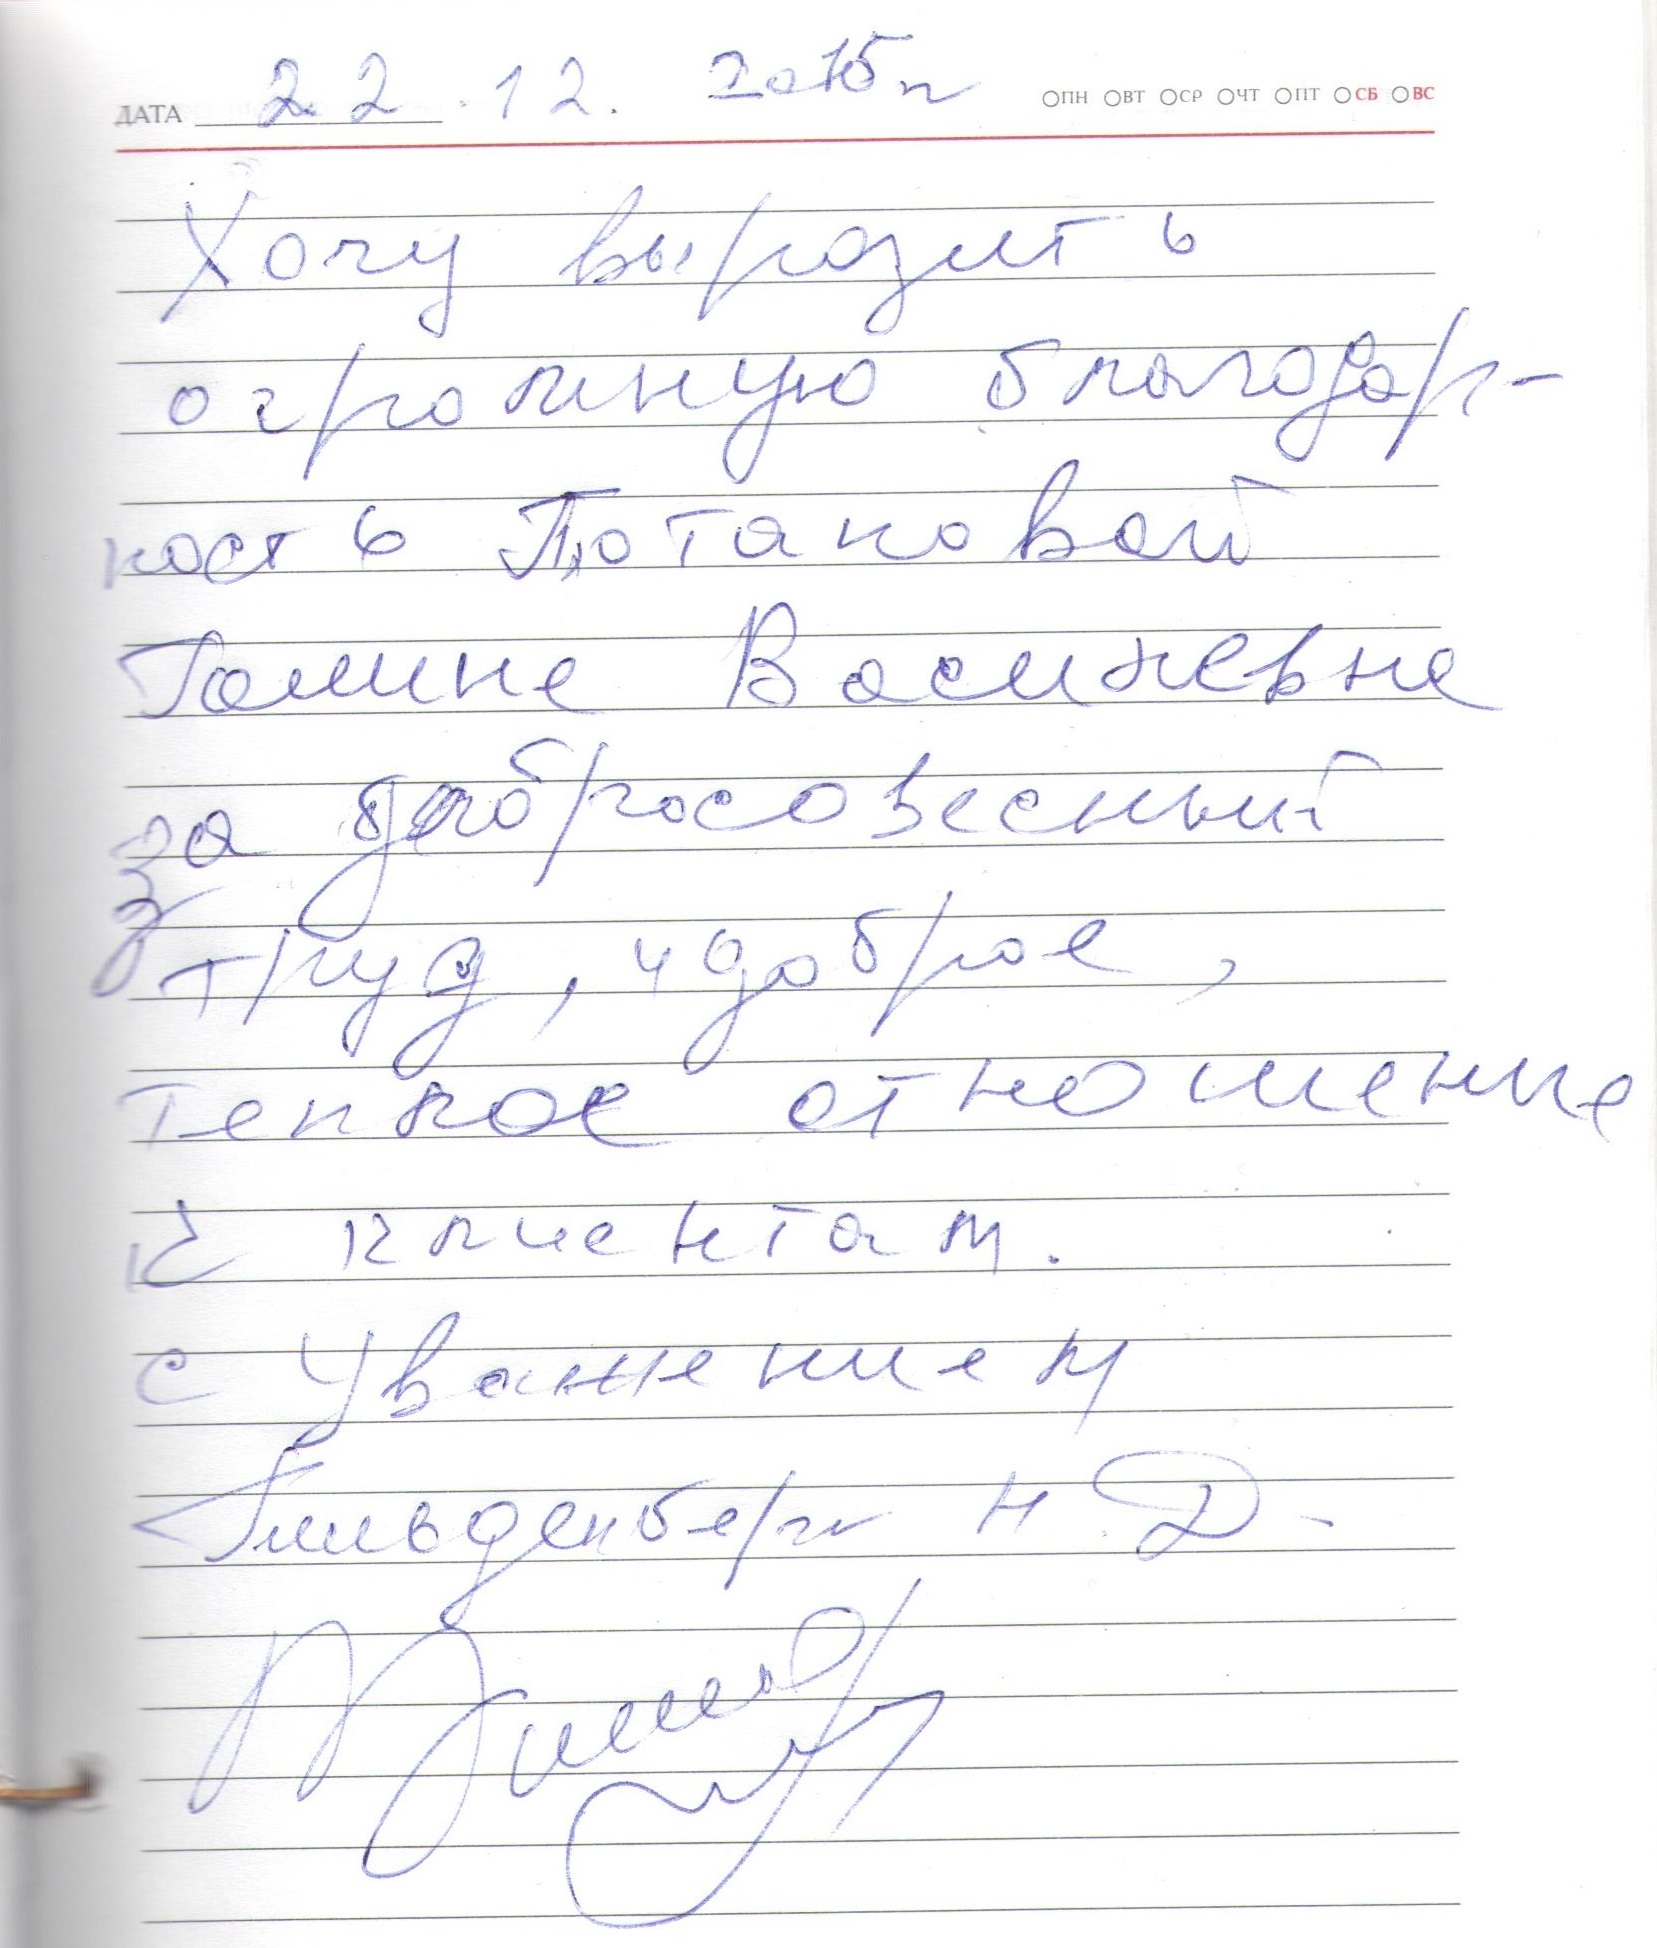 ДАТА 22.12. 2015г ПН ВТ СР ЧТ ПТ СБ ВС
Хочу выразить
огромную благодар-
ность Потаковой
Галине Васильевне
за добросовесный
труд, и доброе,
теплое отношение
к клиентам.
с Уважением
Гильденберг Н Д.